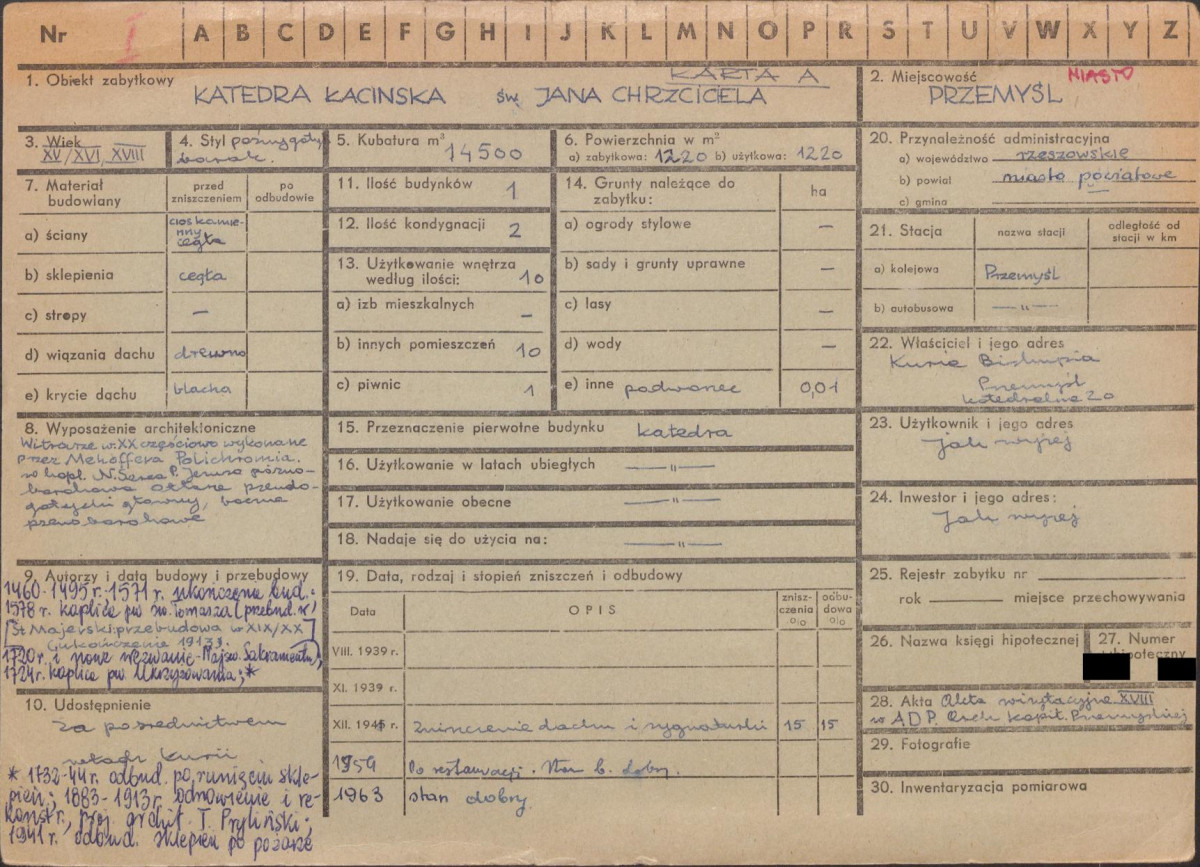 Nr I A B C D E F G H I J K L M N O P R S T U V W X Y Z
1. Obiekt zabytkowy
KARTA A
KATEDRA ŁACINSKA św. JANA CHRZCICELA
2. Miejscowość
MIASTO
PRZEMYŚL
3. Wiek
XV/XVI, XVIII
4. Styl
barok.
5. Kubatura m³ 14500
6. Powierzchnia w m²
a) zabytkowa: 1220 b) użytkowa: 1220
20. Przynależność administracyjna
a) województwo rzeszowskie
b) powiat miasto powiatowe
c) gmina
7. Materiał budowiany
przed zniszczeniem
po odbudowie
a) ściany
cios kamie-
nny
cegła
b) sklepienia cegła
c) stropy –
d) wiązania dachu drewno
e) krycie dachu blacha
11. Ilość budynków 1
12. Ilość kondygnacji 2
13. Użytkowanie wnętrza
według ilości: 10
a) izb mieszkalnych –
b) innych pomieszczeń 10
c) piwnic 1
14. Grunty należące do
zabytku:
ha
a) ogrody stylowe –
b) sady i grunty uprawne –
c) lasy –
d) wody –
e) inne 0,01
21. Stacja
nazwa stacji
odległość od
stacji w km
a) kolejowa Przemyśl
b) autobusowa —„—
22. Właściciel i jego adres
Kuria Biskupia
Przemyśl
Katedralna 20
8. Wyposażenie architektoniczne
Witraże w. XX częściowo wykonane
przez Mehoffera Polichromia.
w kapl. N. Serca P. Jezusa późno-
barokowa Ołtarze pseudo-
gotycki główny, boczne
barokowe
15. Przeznaczenie pierwotne budynku katedra
16. Użytkowanie w latach ubiegłych —„—
17. Użytkowanie obecne —„—
18. Nadaje się do użycia na: —„—
23. Użytkownik i jego adres
Jak wyżej
24. Inwestor i jego adres:
Jak wyżej
9. Autorzy i data budowy i przebudowy
1460-1495 r. 1571 r. ukończenie bud.:
1578 r. kaplica pw. św. Tomasza (przebud. w
[St Majerski: przebudowa w XIX/XX]
ukończenie 1913 r.
1720 r. i nowe wezwanie - Najśw. Sakramentu);
1724 r. kaplica pw. Ukrzyżowania; *
19. Data, rodzaj i stopień zniszczeń i odbudowy
Data
OPIS
znisz-
czenia
%
odbu-
dowa
%
VIII. 1939 r.
XI. 1939 r.
XII. 1945 r. Zniszczenie dachu i sygnaturki 15 15
1959 Po restauracji. Stan b. dobry.
1963 stan dobry.
25. Rejestr zabytku nr
rok miejsce przechowywania
26. Nazwa księgi hipotecznej
27. Numer
hipoteczny
28. Akta Akta wizytacyjne XVIII
w ADP. Arch Kapit. Przemyskiej
29. Fotografie
30. Inwentaryzacja pomiarowa
10. Udostępnienie
Za pośrednictwem
władz Kurii
* 1732-44 r. odbud. po runięciu skle-
pień; 1883-1913 r. odnowienie i re-
konstr., proj. archit. T. Pryliński;
1941 r. odbud. sklepień po pożarze